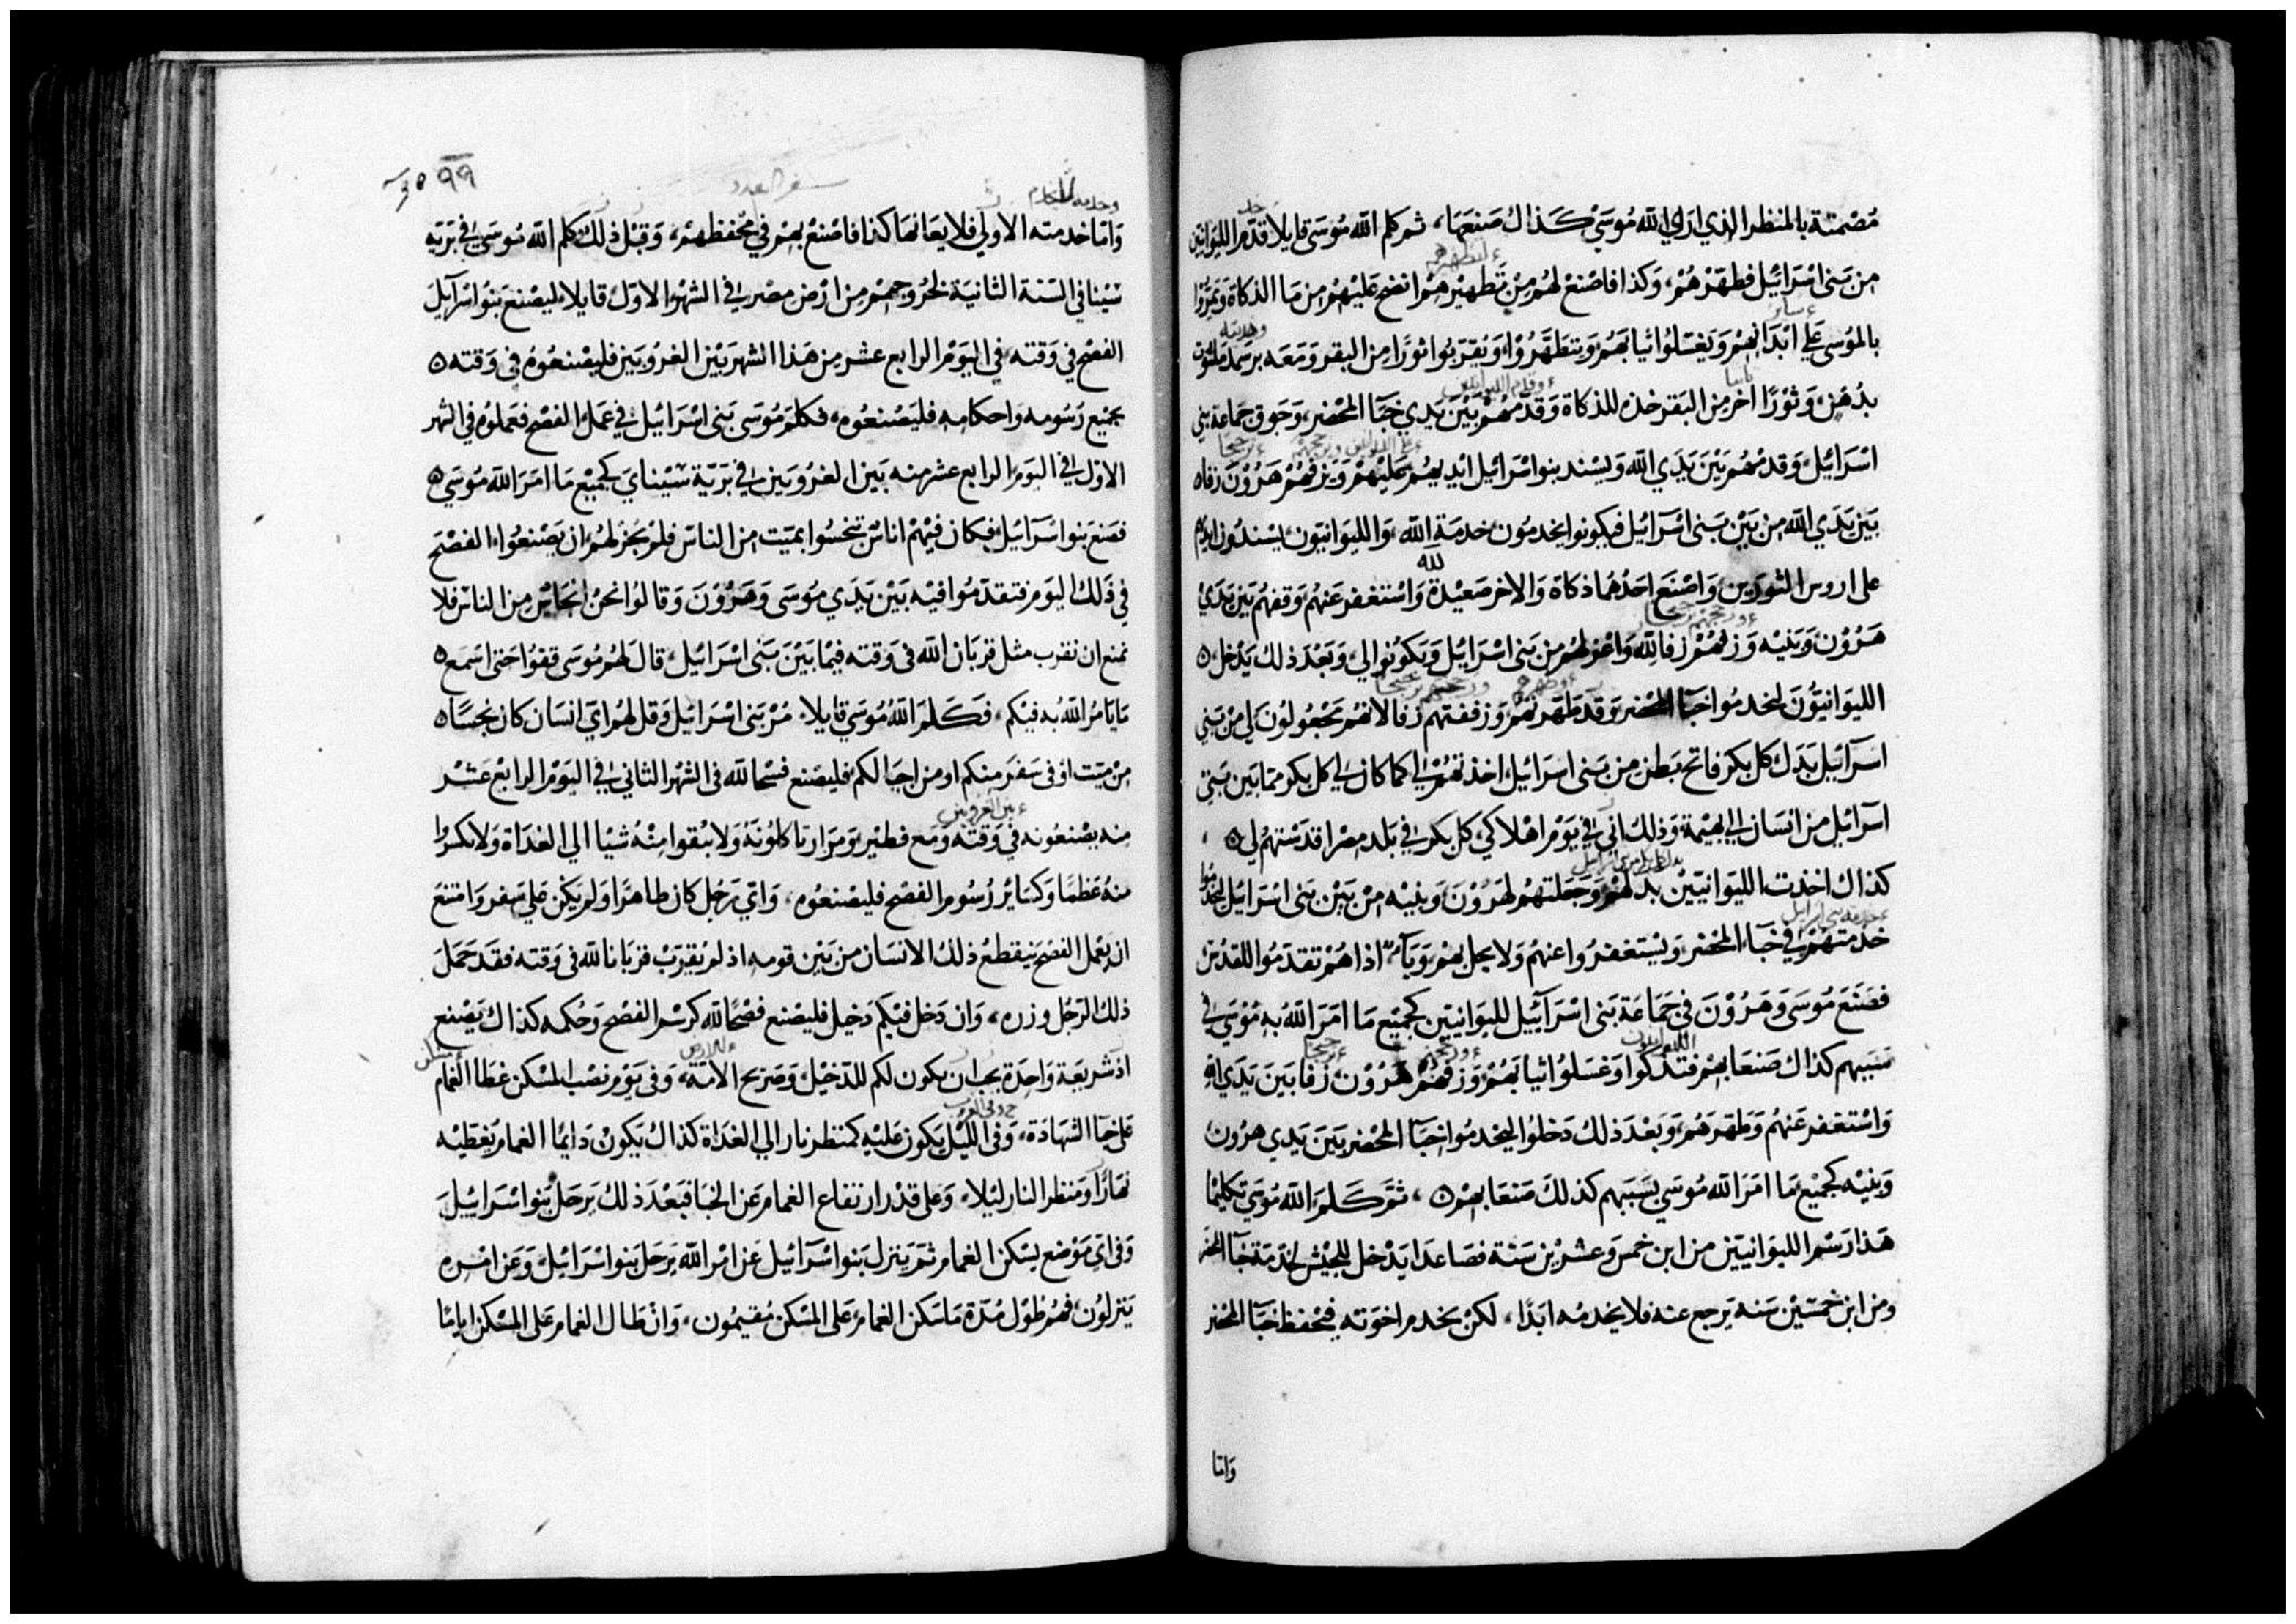 مصمتة بالمنظر الذي اراي الله موسي كذاك صنعها، ثم كلم الله موسى قايلا قدم الليوانيين
من بنى اسرائيل فطهرهم، وكذا فاصنع لهم من تطهيرهم انضح عليهم من ما الذكاة ويمروا
بالموسى على ابدانهم ويغسلوا ثيابهم ويتطهروا، ويقربوا ثورا من البقر ومعه برسمه ملتوت
بدهن، وثورا اخر من البقر خذه للذكاة وقدمهم بين يدي خبآ المحضر، وجوق جماعة بني
اسرائيل، وقدمهم بين يدي الله ويسند بنوا اسرائيل ايديهم عليهم ويزفهم هرون زفاه
بين يدي الله من بين بنى اسرآئيل فيكونوا يخدمون خدمة الله، والليوانيون يسندون ايديهم
على اروس الثورين، واصنع احدهما ذكاة والاخر صعيدة لله واستغفر عنهم، وقفهم بين يدي
هرون وبنيه وزفهم زفا لله واعزلهم من بنى اسرائيل ويكونوا لي، وبعد ذلك يدخل ه
الليوانيون ليخدموا خبآ المحضر وقد طهرتهم وزففتهم زفا لانهم مجعولون لي من بني
اسرآئيل بدل كل بكر فاتح بطن من بنى اسرائيل اخذتهم لي كما كان لي كل بكر مما بين بني
اسرآئيل من انسان الي بهيمة، وذلك اني في يوم اهلاكي كل بكر في بلد مصر اقدستهم لي ه
كذاك اخذت الليوانيين بدلهم وجعلتهم لهرون وبنيه من بين بنى اسرائيل ليخدموا
خدمتهم في خبآء المحضر ويستغفروا عنهم ولا يحل بهم وبآء اذا هم تقدموا للقدس
فصنع موسى وهرون في جماعة بنى اسرآئيل لليوانيين كجميع ما امر الله به موسي في
سببهم كذاك صنعا بهم فتذكوا وغسلوا ثيابهم، وزفهم هرون زفا بين يدي الله
واستغفر عنهم وطهرهم، وبعد ذلك دخلوا ليخدموا خبآ المحضر بين يدي هرون
وبنيه كجميع ما امر الله موسي بسببهم كذلك صنعا بهم ه، ثم كلم الله موسي تكليما
هذا رسم الليوانيين من ابن خمس وعشرين سنة فصاعدا يدخل للجيش لخدمة خبآ المحضر
ومن ابن خمسين سنه يرجع عنه فلا يخدمه ابدا، لكن يخدم اخوته في محفظ خبآ المحضر
واما
٩٩
سفر العدد
واما خدمته الاولى فلا يعانها كذا فاصنع بهم في محفظهم، وقبل ذلك كلم الله موسى في برية
سينا في السنة الثانية لخروجهم من ارض مصر في الشهر الاول قايلا، ليصنع بنوا اسرآئيل
الفصح في وقته، في اليوم الرابع عشر من هذا الشهر بين الغروبين فليصنعوه في وقته ه
بجميع رسومه واحكامه فليصنعوه، فكلم موسى بنى اسرائيل في عمل الفصح فعملوه في الشهر
الاول في اليوم الرابع عشر منه بين الغروبين في برية سيناي كجميع ما امر الله موسي ه
فصنع بنوا اسرآئيل، فكان فيهم اناس تنجسوا بميت من الناس فلم يجز لهم ان يصنعوا الفصح
في ذلك اليوم فتقدموا فيه بين يدي موسى وهرون وقالوا نحن انجاس من الناس فلا
نمنع ان نقرب مثل قربان الله في وقته فيما بين بنى اسرائيل، قال لهم موسى قفوا حتى اسمع ه
ما يامر الله به فيكم، فكلم الله موسي قايلا، مر بنى اسرائيل وقل لهم اي انسان كان نجسا ه
من ميت او في سفر منكم او من اجيالكم فليصنع فسحا لله في الشهر الثاني في اليوم الرابع عشر
منه يصنعونه في وقته ومع فطير ومرار تاكلونه ولا يبقوا منه شيا الي الغداة ولا يكسروا
منه عظما وكساير رسوم الفصح فليصنعوه، واي رجل كان طاهرا ولم يكن علي سفر وامتنع
ان يعمل الفصح ينقطع ذلك الانسان من بين قومه اذ لم يقرب قربانا لله في وقته فقد حمل
ذلك الرجل وزره، وان دخل فيكم دخيل فليصنع فصحا لله كرسم الفصح وحكمه كذاك يصنع
اذ شريعة واحدة يجب ان يكون لكم للدخيل وصريح الامة، وفي يوم نصب المسكن غطا الغمام
على خبآ الشهادة، وفي الليل يكون عليه كمنظر نار الي الغداة كذاك يكون دايما الغمام يغطيه
نهارا ومنظر النار ليلا، وعلى قدر ارتفاع الغمام عن الخبا فبعد ذلك يرحل بنوا اسرائيل
وفي اي موضع يسكن الغمام ثم ينزل بنوا اسرآئيل عن امر الله يرحل بنوا اسرائيل، وعن امره
ينزلون فهم طول مدة ما سكن الغمام على المسكن مقيمون، وان طال الغمام على المسكن اياما